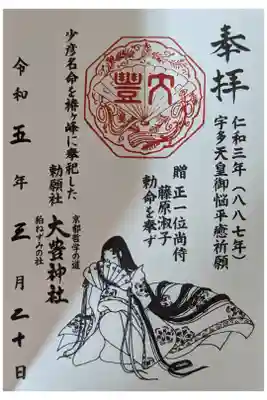 奉拝
仁和三年(八八七年)
宇多天皇御悩平癒祈願
贈正一位尚侍
藤原淑子
勅命を奉ず
大豊
少彦名命を椿ヶ峰に奉祀した
勅願社
京都哲学の道
大豊神社
狛ねずみの社
令和五年三月二十日